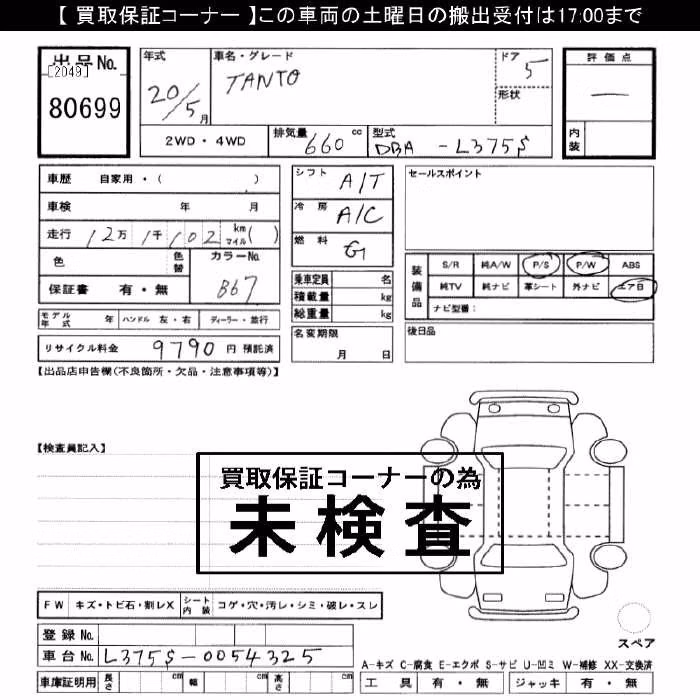 【 買取保証コーナー 】この車両の土曜日の搬出受付は17:00まで
出品No.
[2049]
80699
年式
20/5月
車名・グレード
TANTO
ドア
5
形状
評価点
—
内装
2WD・4WD
排気量
660 cc
型式
DBA -L375S
車歴 自家用・( )
車検 年 月
走行 12万 1千 102 km マイル( )
色
色替
カラーNo.
B67
保証書 有・無
シフト
A/T
冷房
A/C
燃料
G
セールスポイント
乗車定員 名
積載量 kg
総重量 kg
装備品
S/R 純A/W P/S P/W ABS
純TV 純ナビ 革シート 外ナビ エアB
ナビ型番:
モデル年式 年 ハンドル 左・右 ディーラー・並行
名変期限
月 日
後日品
リサイクル料金 9790 円 預託済
【出品店申告欄(不良箇所・欠品・注意事項等)】
【検査員記入】
買取保証コーナーの為
未検査
FW キズ・トビ石・割レX シート内装 コゲ・穴・汚レ・シミ・破レ・スレ
登録No.
車台No. L375S-0054325
スペア
A-キズ C-腐食 E-エクボ S-サビ U-凹ミ W-補修 XX-交換済
車庫証明用 長さ cm 幅 cm 高さ cm
工具 有・無 ジャッキ 有・無